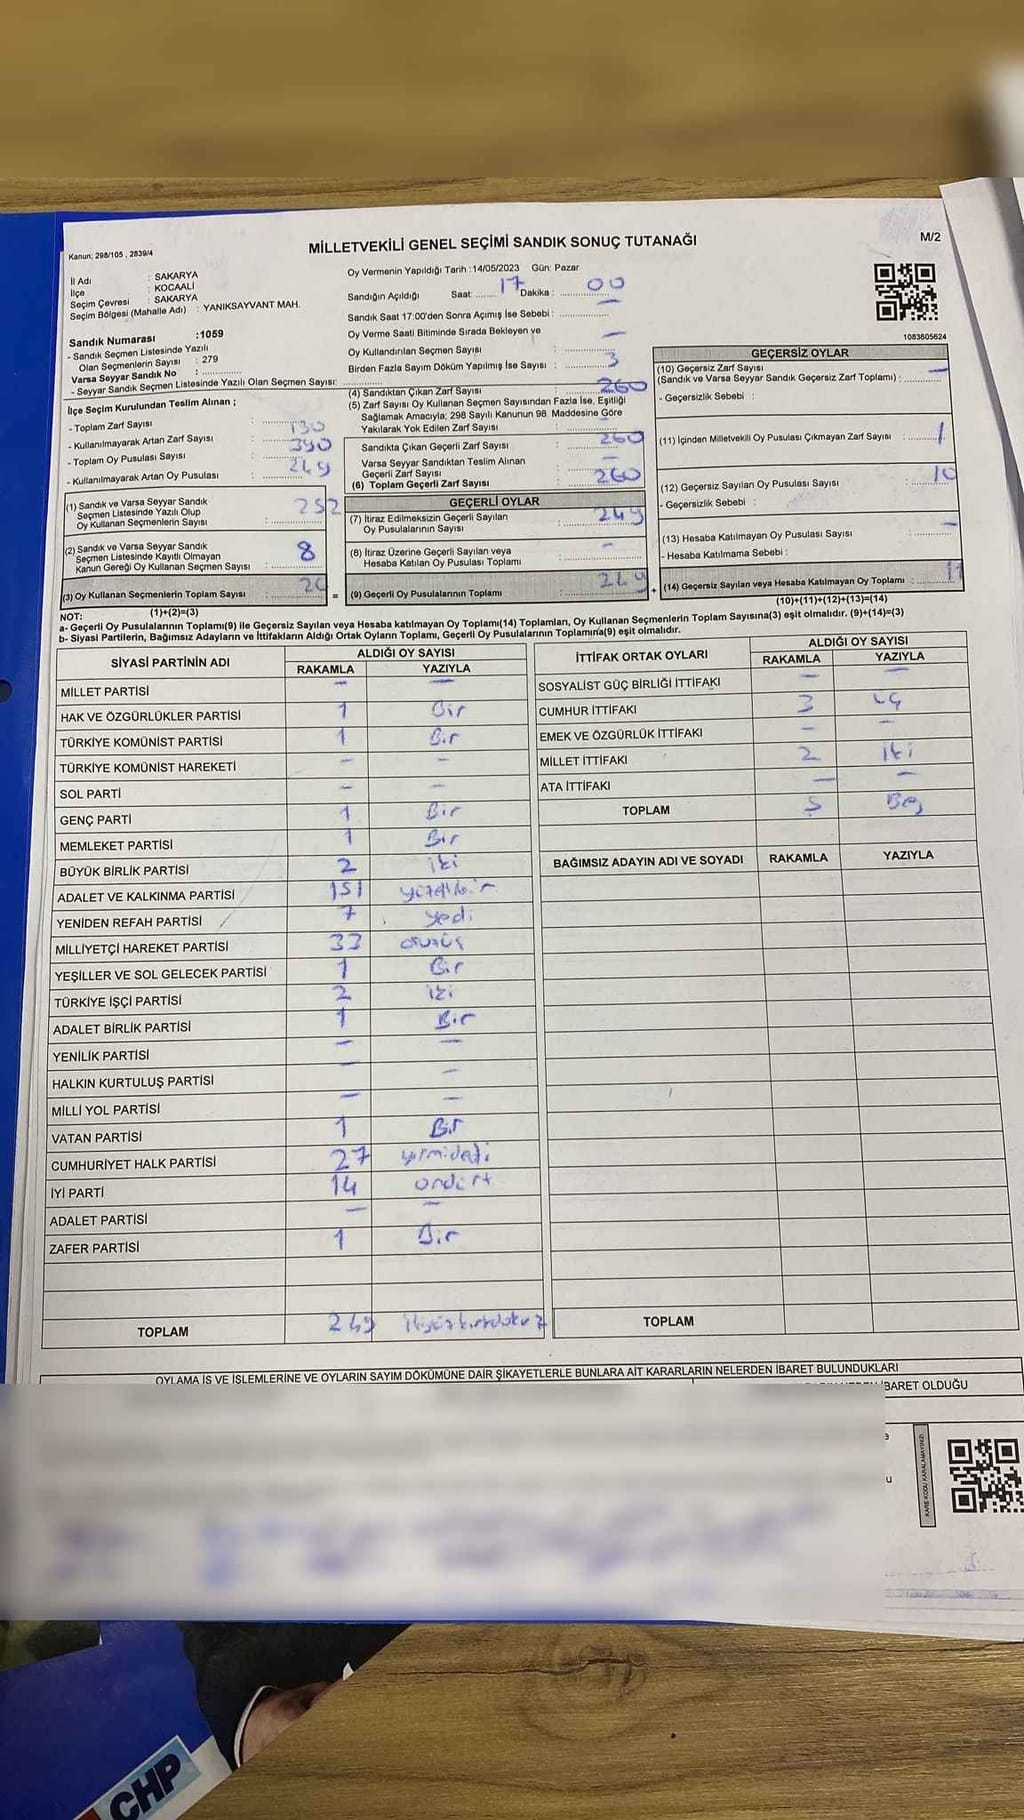 Kanun; 298/105 , 2839/4
MİLLETVEKİLİ GENEL SEÇİMİ SANDIK SONUÇ TUTANAĞI
M/2
İl Adı : SAKARYA
İlçe : KOCAALİ
Seçim Çevresi : SAKARYA
Seçim Bölgesi (Mahalle Adı) : YANIKSAYVANT MAH.
Sandık Numarası :1059
- Sandık Seçmen Listesinde Yazılı
Olan Seçmenlerin Sayısı : 279
Varsa Seyyar Sandık No : ............
- Seyyar Sandık Seçmen Listesinde Yazılı Olan Seçmen Sayısı: ............
İlçe Seçim Kurulundan Teslim Alınan ;
- Toplam Zarf Sayısı
- Kullanılmayarak Artan Zarf Sayısı : 130
- Toplam Oy Pusulası Sayısı : 390
- Kullanılmayarak Artan Oy Pusulası : 249
(1) Sandık ve Varsa Seyyar Sandık
Seçmen Listesinde Yazılı Olup
Oy Kullanan Seçmenlerin Sayısı : 252
(2) Sandık ve Varsa Seyyar Sandık
Seçmen Listesinde Kayıtlı Olmayan
Kanun Gereği Oy Kullanan Seçmen Sayısı : 8
(3) Oy Kullanan Seçmenlerin Toplam Sayısı : 26
(1)+(2)=(3)
Oy Vermenin Yapıldığı Tarih :14/05/2023 Gün: Pazar
Sandığın Açıldığı Saat: 17 Dakika : 00
Sandık Saat 17:00'den Sonra Açımış İse Sebebi : —
Oy Verme Saati Bitiminde Sırada Bekleyen ve
Oy Kullandırılan Seçmen Sayısı : —
Birden Fazla Sayım Döküm Yapılmış İse Sayısı : 3
(4) Sandıktan Çıkan Zarf Sayısı : 260
(5) Zarf Sayısı Oy Kullanan Seçmen Sayısından Fazla İse, Eşitliği
Sağlamak Amacıyla; 298 Sayılı Kanunun 98. Maddesine Göre
Yakılarak Yok Edilen Zarf Sayısı :
Sandıkta Çıkan Geçerli Zarf Sayısı : 260
Varsa Seyyar Sandıktan Teslim Alınan
Geçerli Zarf Sayısı : —
(6) Toplam Geçerli Zarf Sayısı : 260
GEÇERLİ OYLAR
(7) İtiraz Edilmeksizin Geçerli Sayılan
Oy Pusulalarının Sayısı : 249
(8) İtiraz Üzerine Geçerli Sayılan veya
Hesaba Katılan Oy Pusulası Toplamı : -
= (9) Geçerli Oy Pusulalarının Toplamı : 249
1083605624
GEÇERSİZ OYLAR
(10) Geçersiz Zarf Sayısı
(Sandık ve Varsa Seyyar Sandık Geçersiz Zarf Toplamı) : —
- Geçersizlik Sebebi :
(11) İçinden Milletvekili Oy Pusulası Çıkmayan Zarf Sayısı : 1
(12) Geçersiz Sayılan Oy Pusulası Sayısı : 10
- Geçersizlik Sebebi :
(13) Hesaba Katılmayan Oy Pusulası Sayısı : —
- Hesaba Katılmama Sebebi :
+ (14) Geçersiz Sayılan veya Hesaba Katılmayan Oy Toplamı : 11
(10)+(11)+(12)+(13)=(14)
NOT:
a- Geçerli Oy Pusulalarının Toplamı(9) ile Geçersiz Sayılan veya Hesaba katılmayan Oy Toplamı(14) Toplamları, Oy Kullanan Seçmenlerin Toplam Sayısına(3) eşit olmalıdır. (9)+(14)=(3)
b- Siyasi Partilerin, Bağımsız Adayların ve İttifakların Aldığı Ortak Oyların Toplamı, Geçerli Oy Pusulalarının Toplamına(9) eşit olmalıdır.
SİYASİ PARTİNİN ADI ALDIĞI OY SAYISI
RAKAMLA YAZIYLA
MİLLET PARTİSİ — —
HAK VE ÖZGÜRLÜKLER PARTİSİ 1 Bir
TÜRKİYE KOMÜNİST PARTİSİ 1 Bir
TÜRKİYE KOMÜNİST HAREKETİ - -
SOL PARTİ - -
GENÇ PARTİ 1 Bir
MEMLEKET PARTİSİ 1 Bir
BÜYÜK BİRLİK PARTİSİ 2 iki
ADALET VE KALKINMA PARTİSİ 151
YENİDEN REFAH PARTİSİ 7 yedi
MİLLİYETÇİ HAREKET PARTİSİ 33 otuzüç
YEŞİLLER VE SOL GELECEK PARTİSİ 1 Bir
TÜRKİYE İŞÇİ PARTİSİ 2 iki
ADALET BİRLİK PARTİSİ 1 Bir
YENİLİK PARTİSİ — —
HALKIN KURTULUŞ PARTİSİ — -
MİLLİ YOL PARTİSİ — -
VATAN PARTİSİ 1 Bir
CUMHURİYET HALK PARTİSİ 27 yirmidedi
İYİ PARTİ 14 ondört
ADALET PARTİSİ — —
ZAFER PARTİSİ 1 Bir
TOPLAM 249 ikiyüzkırkdokuz
İTTİFAK ORTAK OYLARI ALDIĞI OY SAYISI
RAKAMLA YAZIYLA
SOSYALİST GÜÇ BİRLİĞİ İTTİFAKI — —
CUMHUR İTTİFAKI 3 üç
EMEK VE ÖZGÜRLÜK İTTİFAKI — -
MİLLET İTTİFAKI 2 iki
ATA İTTİFAKI — -
TOPLAM 5 Beş
BAĞIMSIZ ADAYIN ADI VE SOYADI RAKAMLA YAZIYLA
TOPLAM
OYLAMA İŞ VE İŞLEMLERİNE VE OYLARIN SAYIM DÖKÜMÜNE DAİR ŞİKAYETLERLE BUNLARA AİT KARARLARIN NELERDEN İBARET BULUNDUKLARI
İBARET OLDUĞU
KARE KODU KARALAMAYINIZ!
CHP